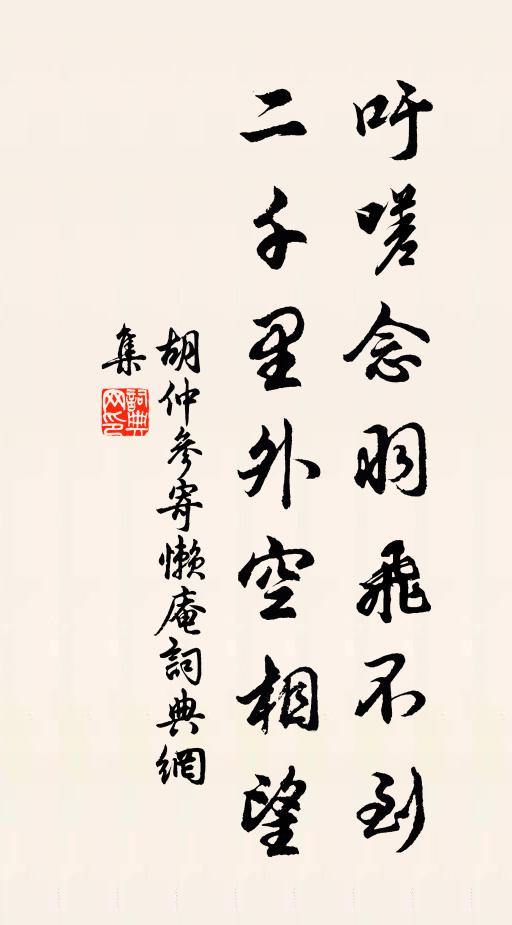 吁嗟念羽飛不到
二千里外空相望
胡仲參寄懶庵詞典網
集
詞典
网印